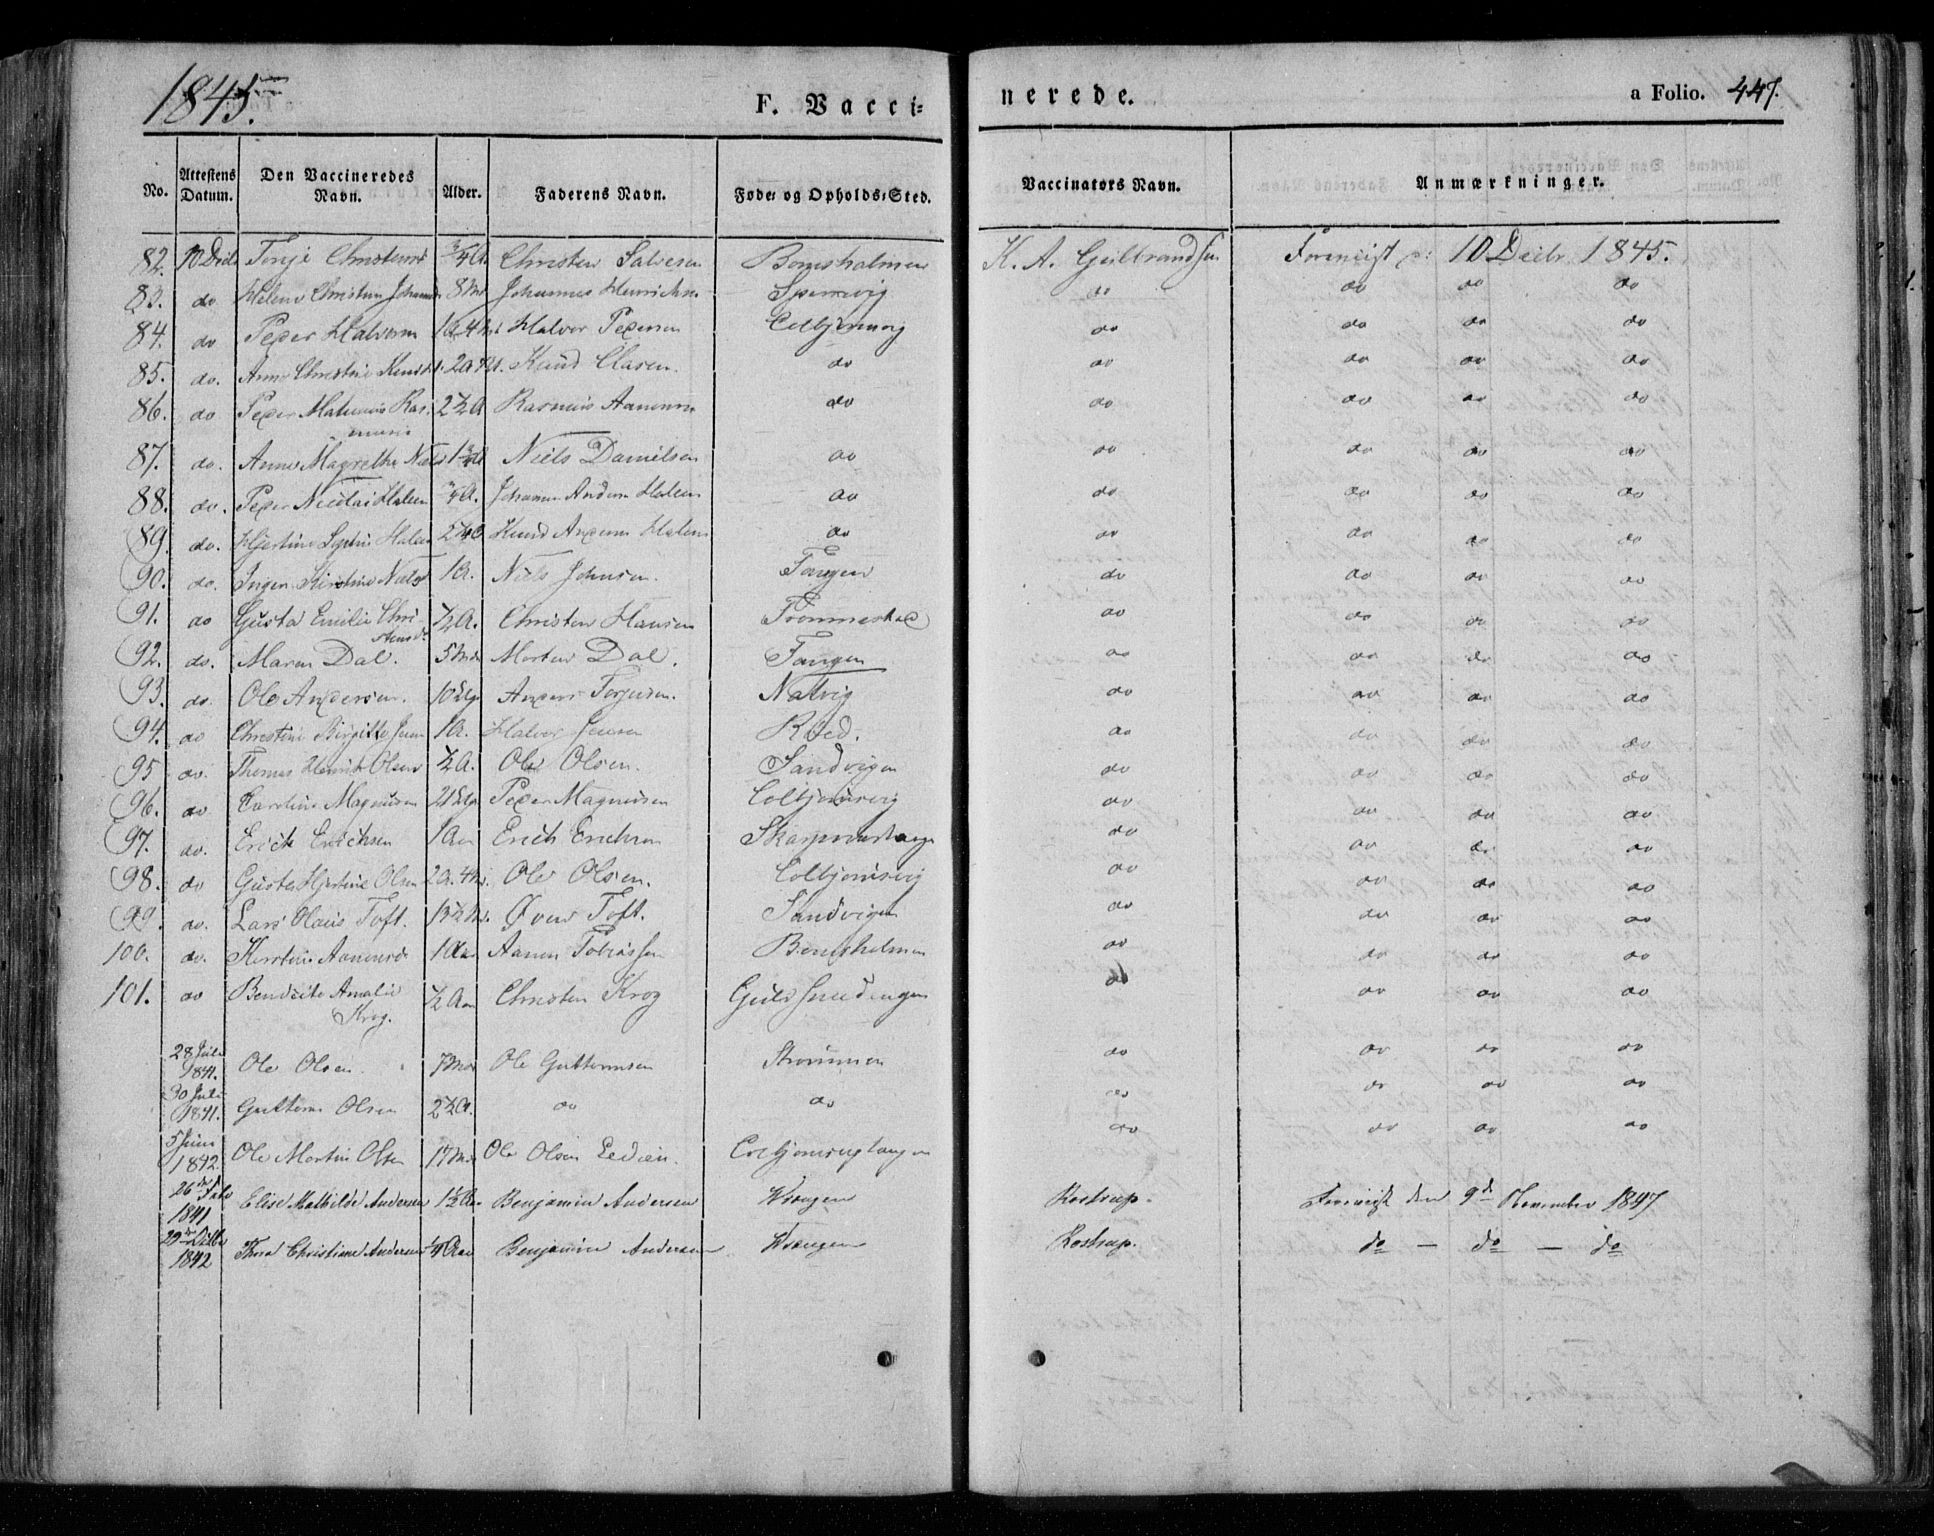 1845.
F. Vacci-
nerede.
a Folio. 447.
No. Attestens Datum. Den Vaccineredes Navn. Alder. Faderens Navn. Føde- og Opholds-Sted. Vaccinators Navn. Anmærkninger.
82. 10 Decbr Terje Christens 3/4 A. Christen Salvesen Bomsholmen K. A. Gulbrandsen Forevist d: 10 Decbr 1845.
83. do Helene Christine Johannsd 8 Md Johannes Henrichsen Spærrevig do do do do
84. do Peder Halvorsen 1a 4 M. Halvor Pedersen Colbjørnsvig do do do do
85. do. Anne Christine Knudsd. Knud Clasen. do do do do do
86. do Peder Mathias Ras- 2 1/2 A Rasmus Aanensen do do do do do
musen
87. do. Anne Magrethe Niels 1 3/4 A Niels Danielsen do do do do do
88. do. Peder Nicolai Halsen 3/4 A. Johannes Anders Halsen do do do do do
89. do. Hjertine Sophie Halsen Knud Anders Halsen do do do do do
90. do. Ingen Kirstine Nielsd 1 A. Niels Jensen. Tangen do do do do
91. do Gusta Emilie Chri- 1/2 A. Christen Hansen Trommestad do do do do
stensd.
92. do. Maren Dal. 5 Mdr Morten Dal. Tangen do do do do
93. do. Ole Andersen. 10 Dge Anders Terjesen. Natvig do do do do
94. do Christine Birgitte Jensen 1 A. Halvor Jensen Røed. do do do do
95 do. Thomas Henrik Olsen 1/2 A. Ole Olsen. Sandvigen do do do do
96. do Caroline Magnusen 21 Dge Peder Magnusen Colbjørnsvig do do do do
97. do. Erich Erichsen 1 Aar Erich Erichsen do do do do
98. do Gusta Hjertine Olsen 2 A. 4 M. Ole Olsen. Colbjørnsvig do do do do
99. do. Lars Olaus Toft. 13 1/2 M. Øven Toft. Sandvigen do do do do
100. do. Kirstine Aanensd 1 Aar Aanen Tobiassen Bomsholmen do do do do
101. do Bendicte Amalie 1/2 Aar Christen Krog Guldsmedengen do do do do
Krog.
28 Juli 1841. Ole Olsen. 7 Mdr Ole Guttormsen Strømmen do do do do
30 Juli 1841. Guttorm Olsen 2 1/2 A. do do do do do do
5 Juni 1842 Ole Martin Olsen 17 Mdr Ole Olsen Colbjørnsvigtangen do do do do
26de 1841 Elise Mathilde Andersen 1 1/2 Aar Benjamin Andersen Wrængen Rostrup. Forevist den 9de November 1847
29de Octbr 1842 Thora Christiane Andersen 1/4 Aar Benjamin Andersen Wrængen Rostrup. do — do — do